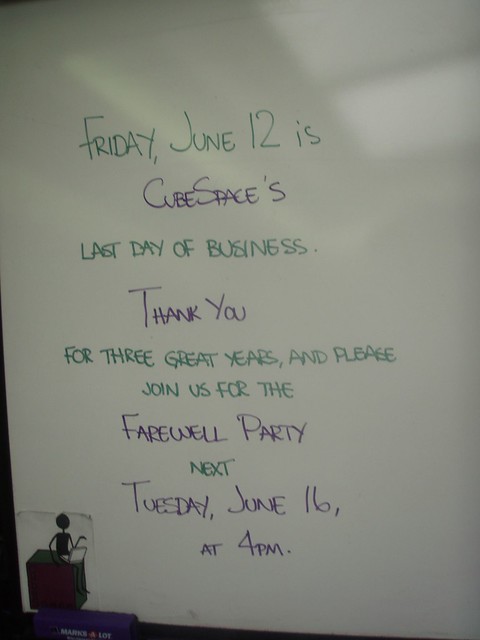 Friday, June 12 is
CubeSpace's
Last day of business.
Thank You
for three great years, and please
join us for the
Farewell Party
next
Tuesday, June 16,
at 4pm.
MARKS A LOT